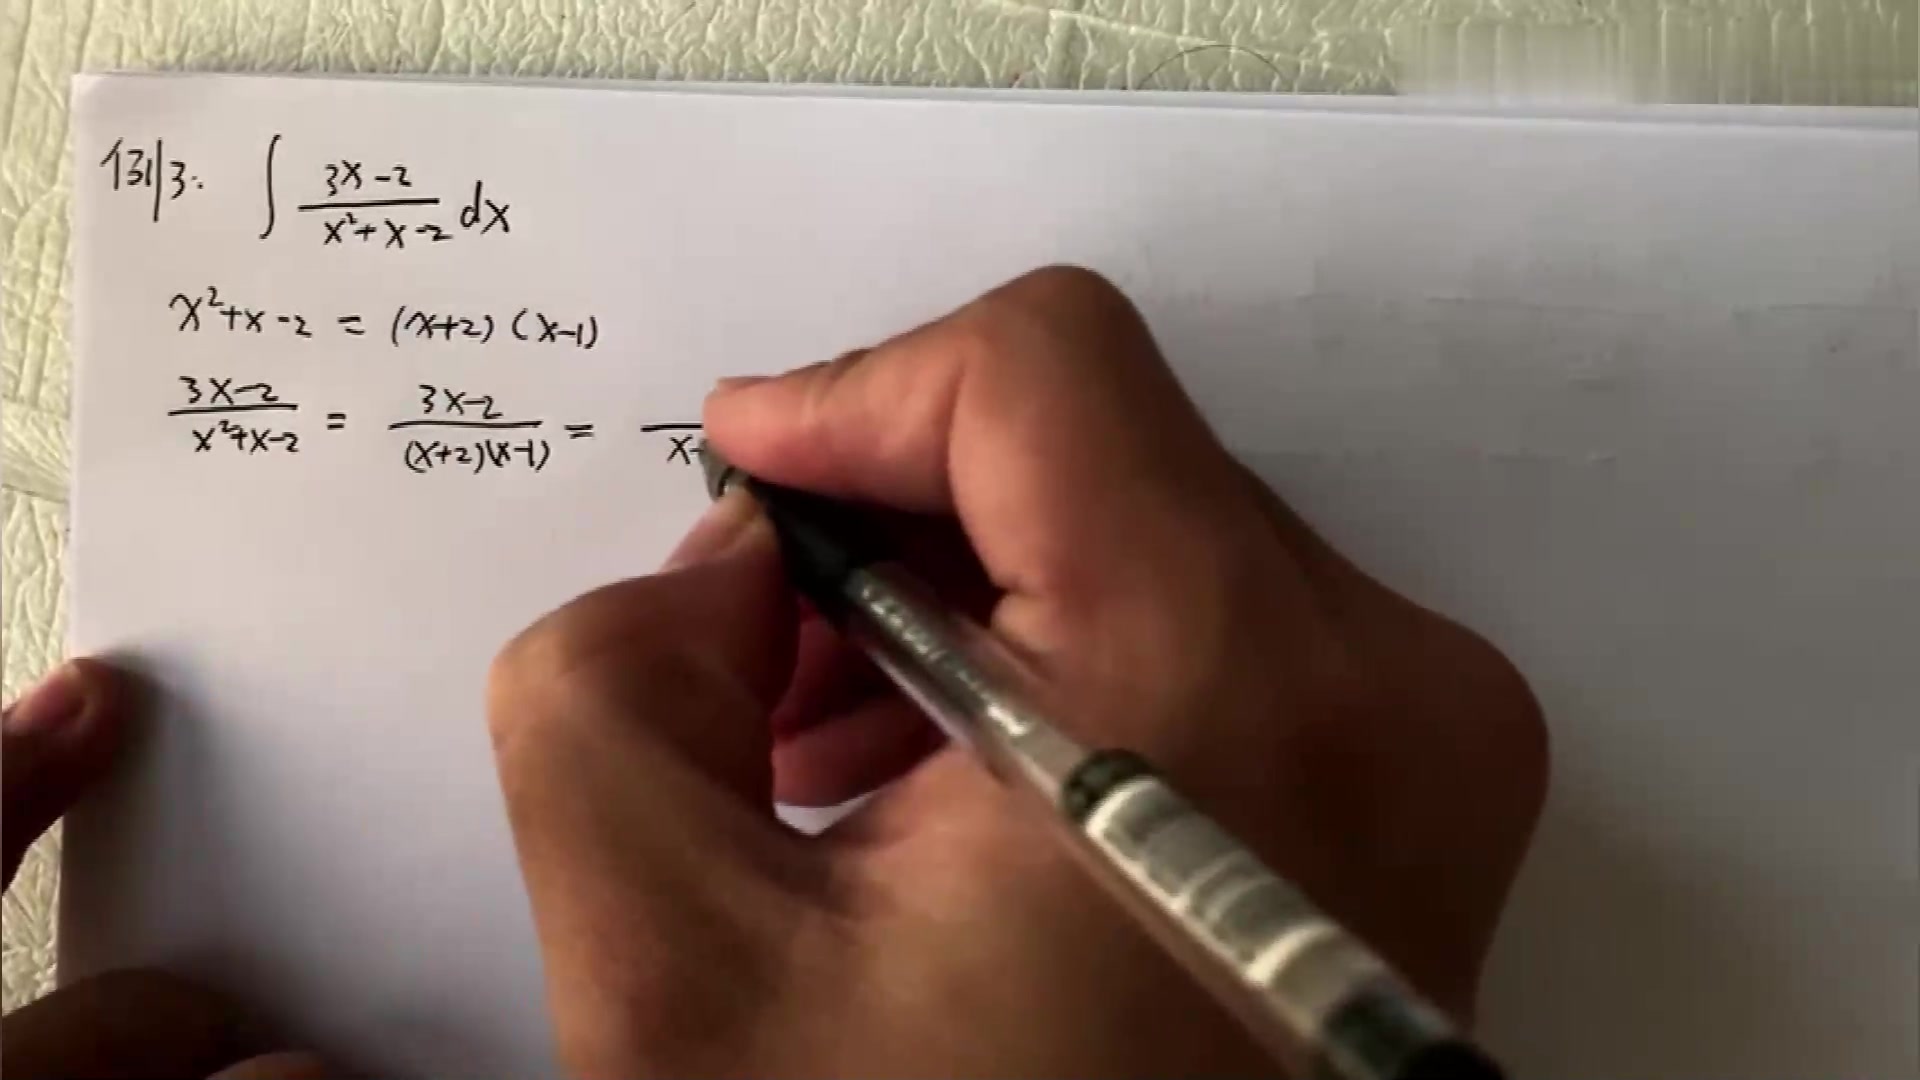 例3: ∫ (3x-2)/(x²+x-2) dx
x²+x-2 = (x+2)(x-1)
(3x-2)/(x²+x-2) = (3x-2)/((x+2)(x-1)) =